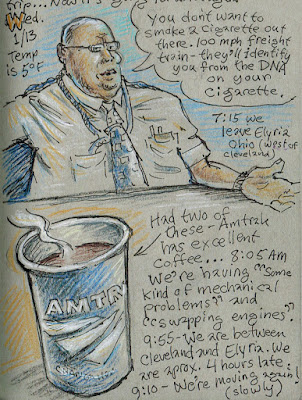 Wed.
1/13
Temp
is 5°F
You don't want to
smoke a cigarette out
there. 100 mph freight
train - they'll identify
you from the DNA
on your
cigarette.
7:15 we
leave Elyria
Ohio (west of
Cleveland)
Had two of
these - Amtrak
has excellent
coffee... 8:05 AM
We're having "some
kind of mechanical
problems" and
"swapping engines".
9:55 - We are between
Cleveland and Elyria. We
are aprox. 4 hours late.
9:10 - We're moving again!
(slowly)
AMTR